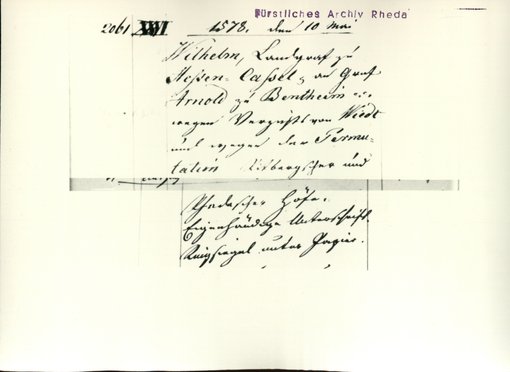 Fürstliches Archiv Rheda
2061 XXVI 1578. den 10 Mai
Wilhelm, Landgraf zu
Hessen-Cassel, an Graf
Arnold zu Bentheim
wegen Verzicht von Wiedt
und wegen der Permu-
tation und
Rhedascher Höfe.
Eigenhändige Unterschrift.
Ringsiegel unter Papier.